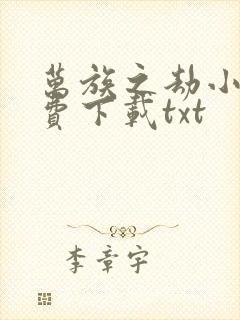 萬族之劫小
費下載txt
李章宇